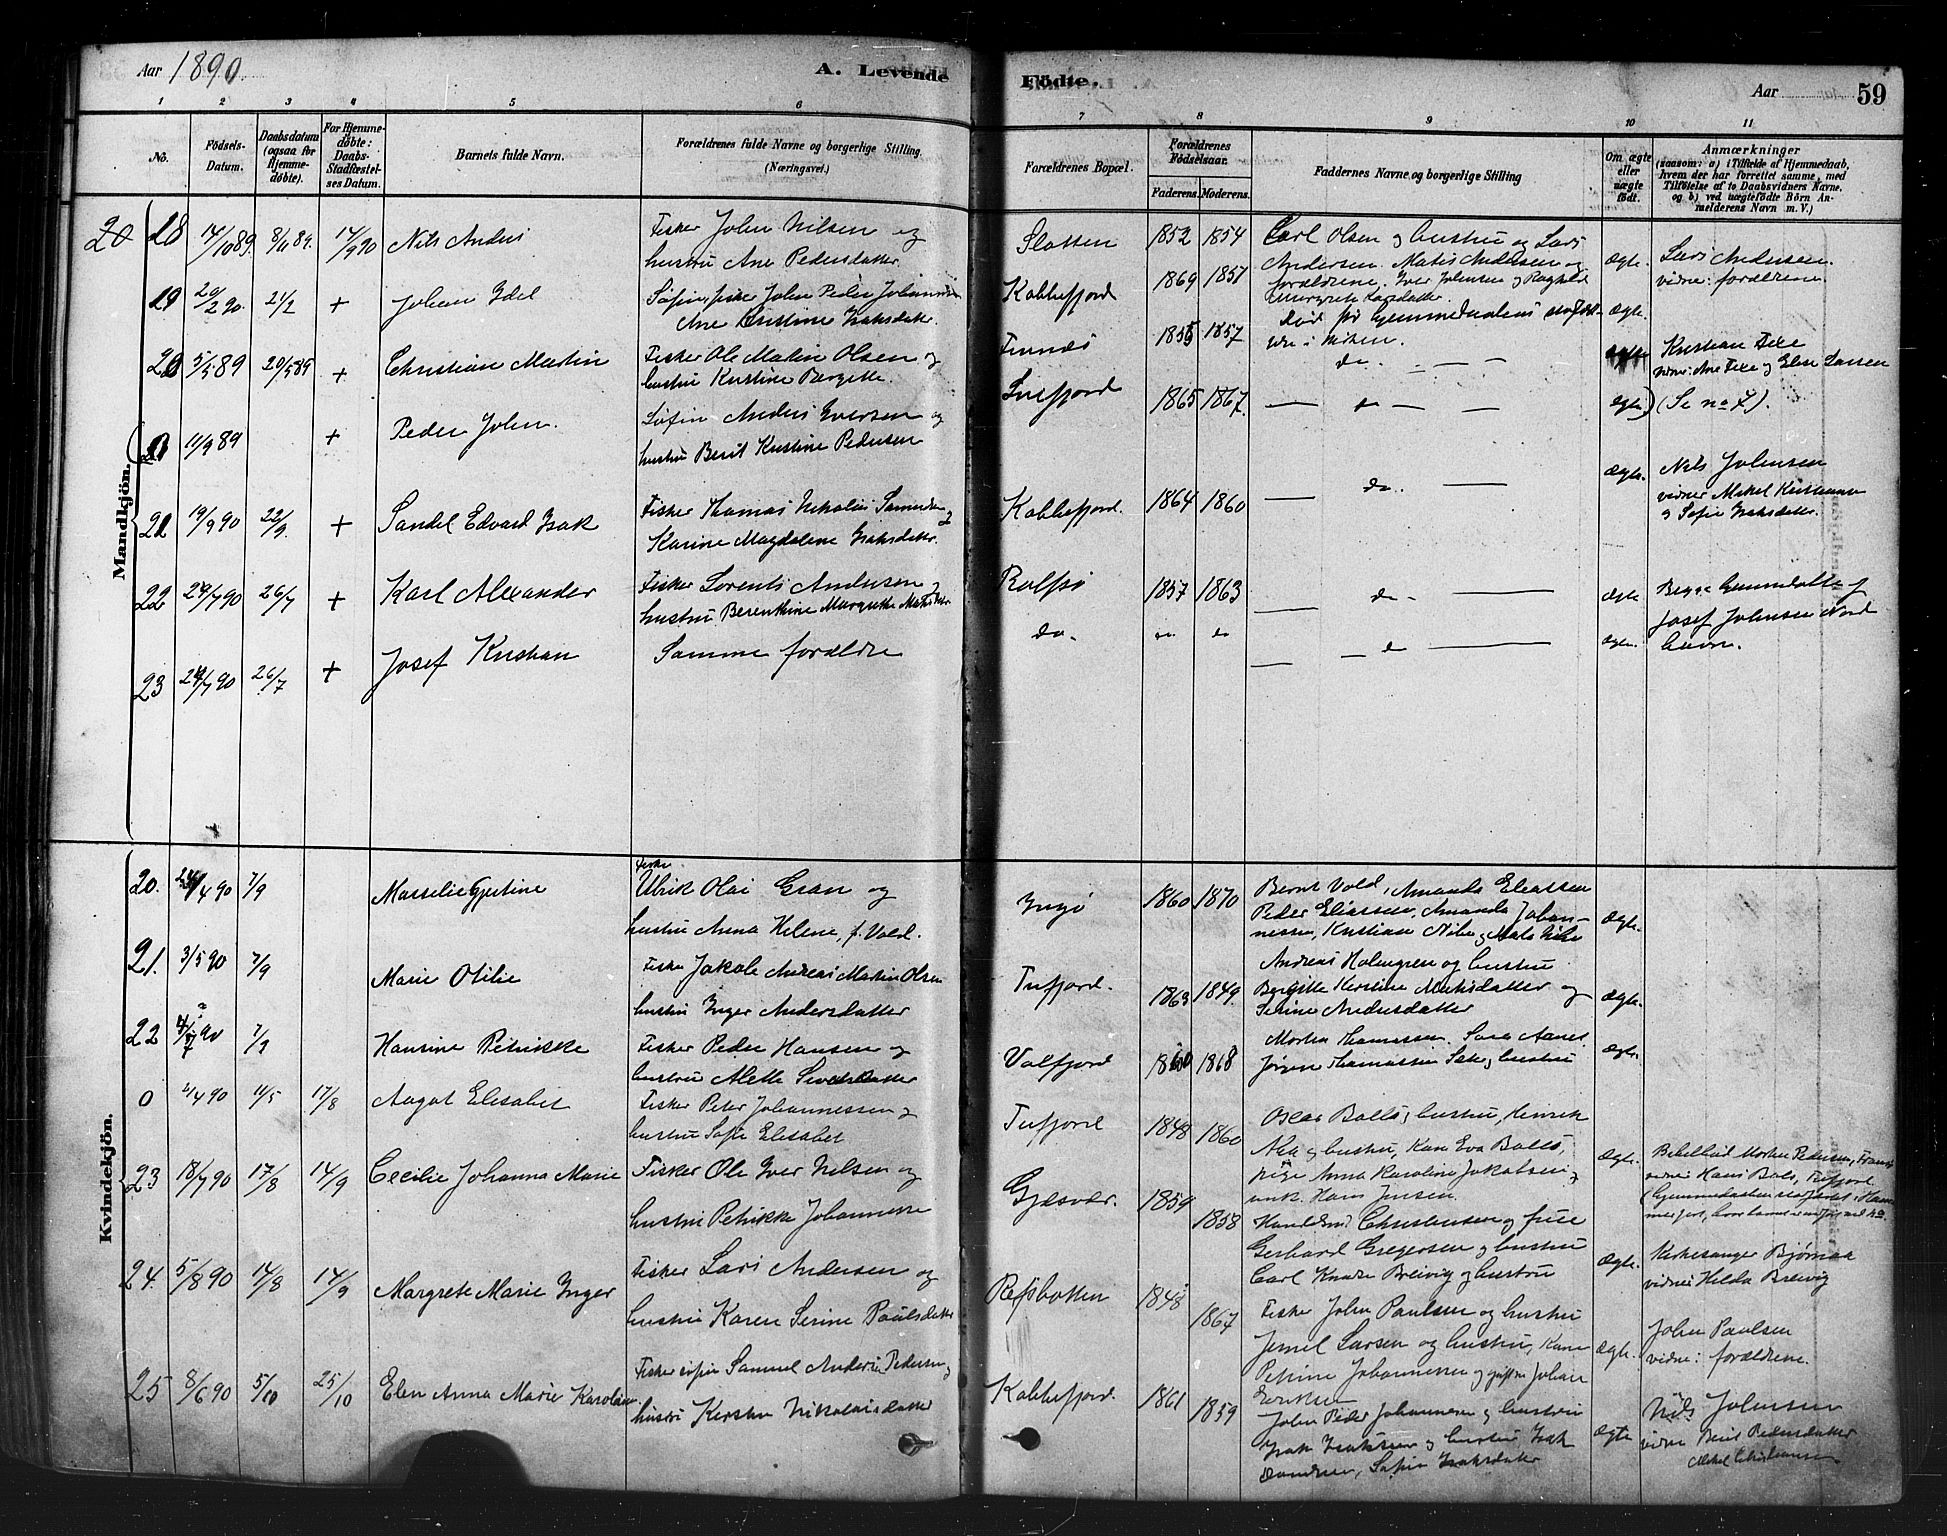 Aar 1890.
A. Levende
Födte.
Aar
59
1 2 3 4 5 6 7 8 9 10 11
No.
Födsels-
Datum.
Daabsdatum
(ogsaa for
Hjemme-
döbte).
For Hjemme-
döbte:
Daabs-
Stadfæstel-
ses Datum.
Barnets fulde Navn.
Forældrenes fulde Navne og borgerlige Stilling.
(Næringsvei.)
Forældrenes Bopæl.
Forældrenes
Födselsaar.
Faderens. Moderens.
Faddernes Navne og borgerlige Stilling
Om ægte
eller
uægte
födt.
Anmærkninger
(saasom: a) i Tilfælde af Hjemmedaab,
hvem der har forrettet samme, med
Tilföielse af to Daabsvidners Navne,
og b) ved uægtefödte Börn An-
melderens Navn m. V.)
Mandkjön.
20 18 14/10 89. 8/11 89. 14/9 90 Nils Anders
Fisker John Nilsen og
hustru Ane Pedersdatter.
Slotten 1852 1854
Carl Olsen og hustru og Lars
Andersen. Matis Andersen og
forældrene.
ægte.
Lars Andersen.
vidner: forældrene
19 20/2 90. 21/2 + Johan Edel
Søfin, fisker John Peder Johannsen
Ane Kristine Isaksdatter.
Kobbefjord 1869 1857
Iver Johnsen og Ragnhild
Margrete Larsdatter.
ægte.
20 5/5 89 20/5 89 + Christian Martin
Fisker Ole Matin Olsen og
hustru Kristine Bergitte.
Finnes 1855 1857
Død før hjemmedaabens stadfæst-
else i kirken.
ægte
Kristian Fixe
vidner: Ane Fixe og Elen Larsen
0 11/9 89 + Peder John.
Søfin Anders Iversen og
hustru Berit Kristine Pedersen
Snefjord 1865 1867.
do.
ægte
(Se no 7).
21 19/9 90 22/9. + Sandel Edvard Isak
Fisker Thomas Nikolai Samuelsen og
Karine Magdalene Isaksdatter.
Kobbefjord. 1864 1860
do.
ægte.
Nils Johnsen
vidner Mikel Kristiansen
og Sofie Isaksdatter.
22 24/7 90 26/7 + Karl Alexander
Fisker Lorents Andersen og
hustru Berenthine Margrethe Matisdatter
Rolfsø 1857 1863
do.
ægte
Begge hjemmedøbte af
Josef Johnsen Nord
havn.
23 24/7 90 26/7 + Josef Kristian
Samme forældre
do. do do
do
ægte.
Kvindekjön.
20. 24/4 90 7/9 Masselie Gjertine
Fisker
Ulrik Olai Gran og
hustru Anna Helene, f. Vold.
Ingø 1860 1870
Bernt Vold, Amanda Eliassen
Peder Eliassen, Amanda Johan-
nessen, Kristian Nilsen
ægte.
21. 3/5 90 7/9 Marie Otilie
Fisker Jakob Andreas Martin Olsen
hustru Inger Andersdatter
Tufjord. 1863 1849.
Andreas Holmgren og hustru
Bergitte Kristine Matisdatter og
Serine Andersdatter
ægte.
22 4/7 90 7/9 Hansine Petrikke
Fisker Peder Hansen og
hustru Alette Sivertsdatter
Valfjord 1860 1868
Morten Thomassen. Sara Aanes
Jørgen Thomassen og hustru
ægte.
0 2/4 90 11/5 17/8 Aagot Elisabet
Fisker Peter Johannessen og
hustru Sofie Elisabet
Tufjord 1848 1860
Oscar Bolls og hustru, Henrik
23 18/7 90 17/8 14/9 Cecilie Johanna Marie
Fisker Ole Iver Nilsen og
hustru Petrikke Johannessen
Gjesvær. 1859 1858
og hustru, Kone Eva Bolls,
pige Anna Karoline Jakobsen og
unk. Hans Jensen.
Christensen og frue
ægte.
Bibelbud Morten Pedersen,
vidner Hans Bols, Tufjord
24. 5/8 90 14/8 14/9 Margrete Marie Inger
Fisker Lars Andersen og
hustru Karen Serine Paulsdatter
Refsbotten 1848 1867
Gerhard Gregersen og hustru
Carl Breivig og hustru
Fisker John Paulsen og hustru
ægte.
Kirkesanger Bjørnaa
vidner Hilda Breivig
25 8/6 90 5/10 25/10 Elen Anna Marie Karoline
Fisker søfin Samuel Anders Pedersen og
hustru Kirsten Nikolaisdatter
Kobbefjord. 1861 1859
Jemil Larsen og hustru, Kone
Petrine Johannessen og gifte Johan
Eriksen
John Peder Johannesen og hustru
Isak Isaksen og hustru, Isak
Danielsen, Sofie Isaksdatter
ægte.
John Paulsen
vidner: forældrene.
ægte
Nils Johnsen
vidne Berit Pedersdatter
Mikel Christiansen